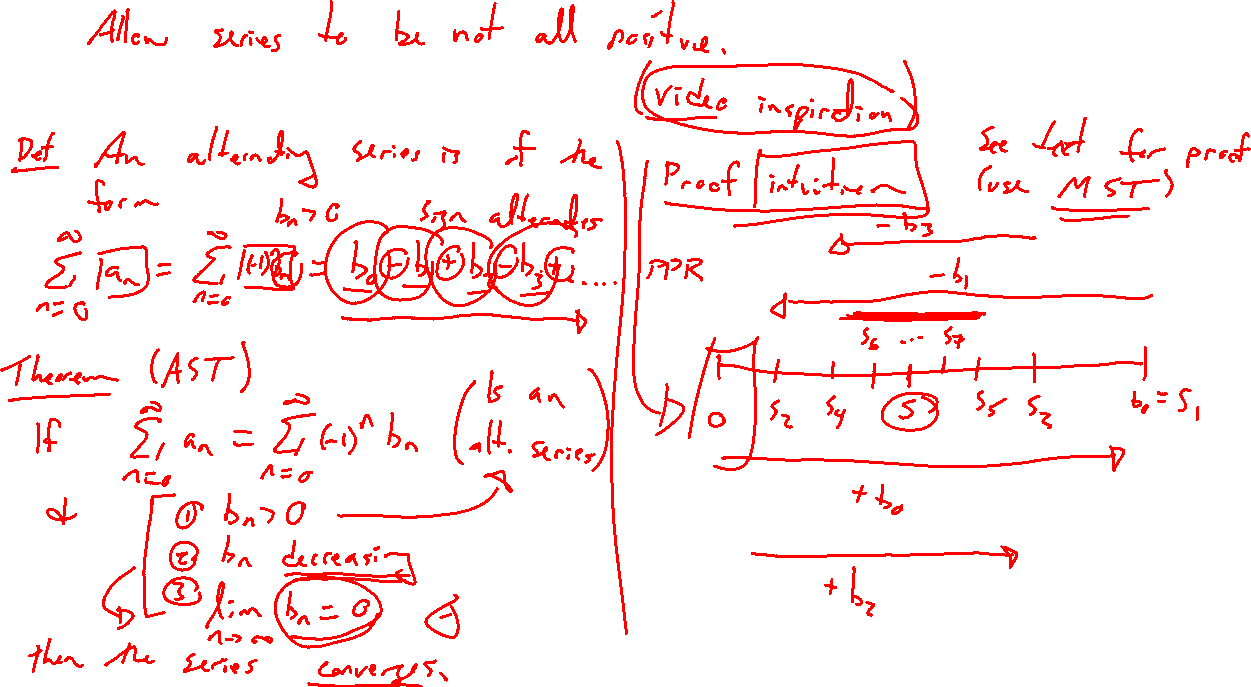 Allow series to be not all positive.
(video inspiration)
Def An alternating series is of the
form
b_n > 0 sign alternates
∞ ∞
∑ a_n = ∑ (-1)^n b_n = b_0 - b_1 + b_2 - b_3 + ....
n=0 n=0
Theorem (AST)
If ∑_{n=0}^{∞} a_n = ∑_{n=0}^{∞} (-1)^n b_n (Is an alt. series)
& ① b_n > 0
② b_n decreasing
③ lim_{n→∞} b_n = 0
then the series converges.
Proof intuition
See text for proof
(use MST)
- b_3
PPR
- b_1
S_6 ... S_7
0 S_2 S_4 S S_5 S_3 b_0 = S_1
+ b_0
+ b_2